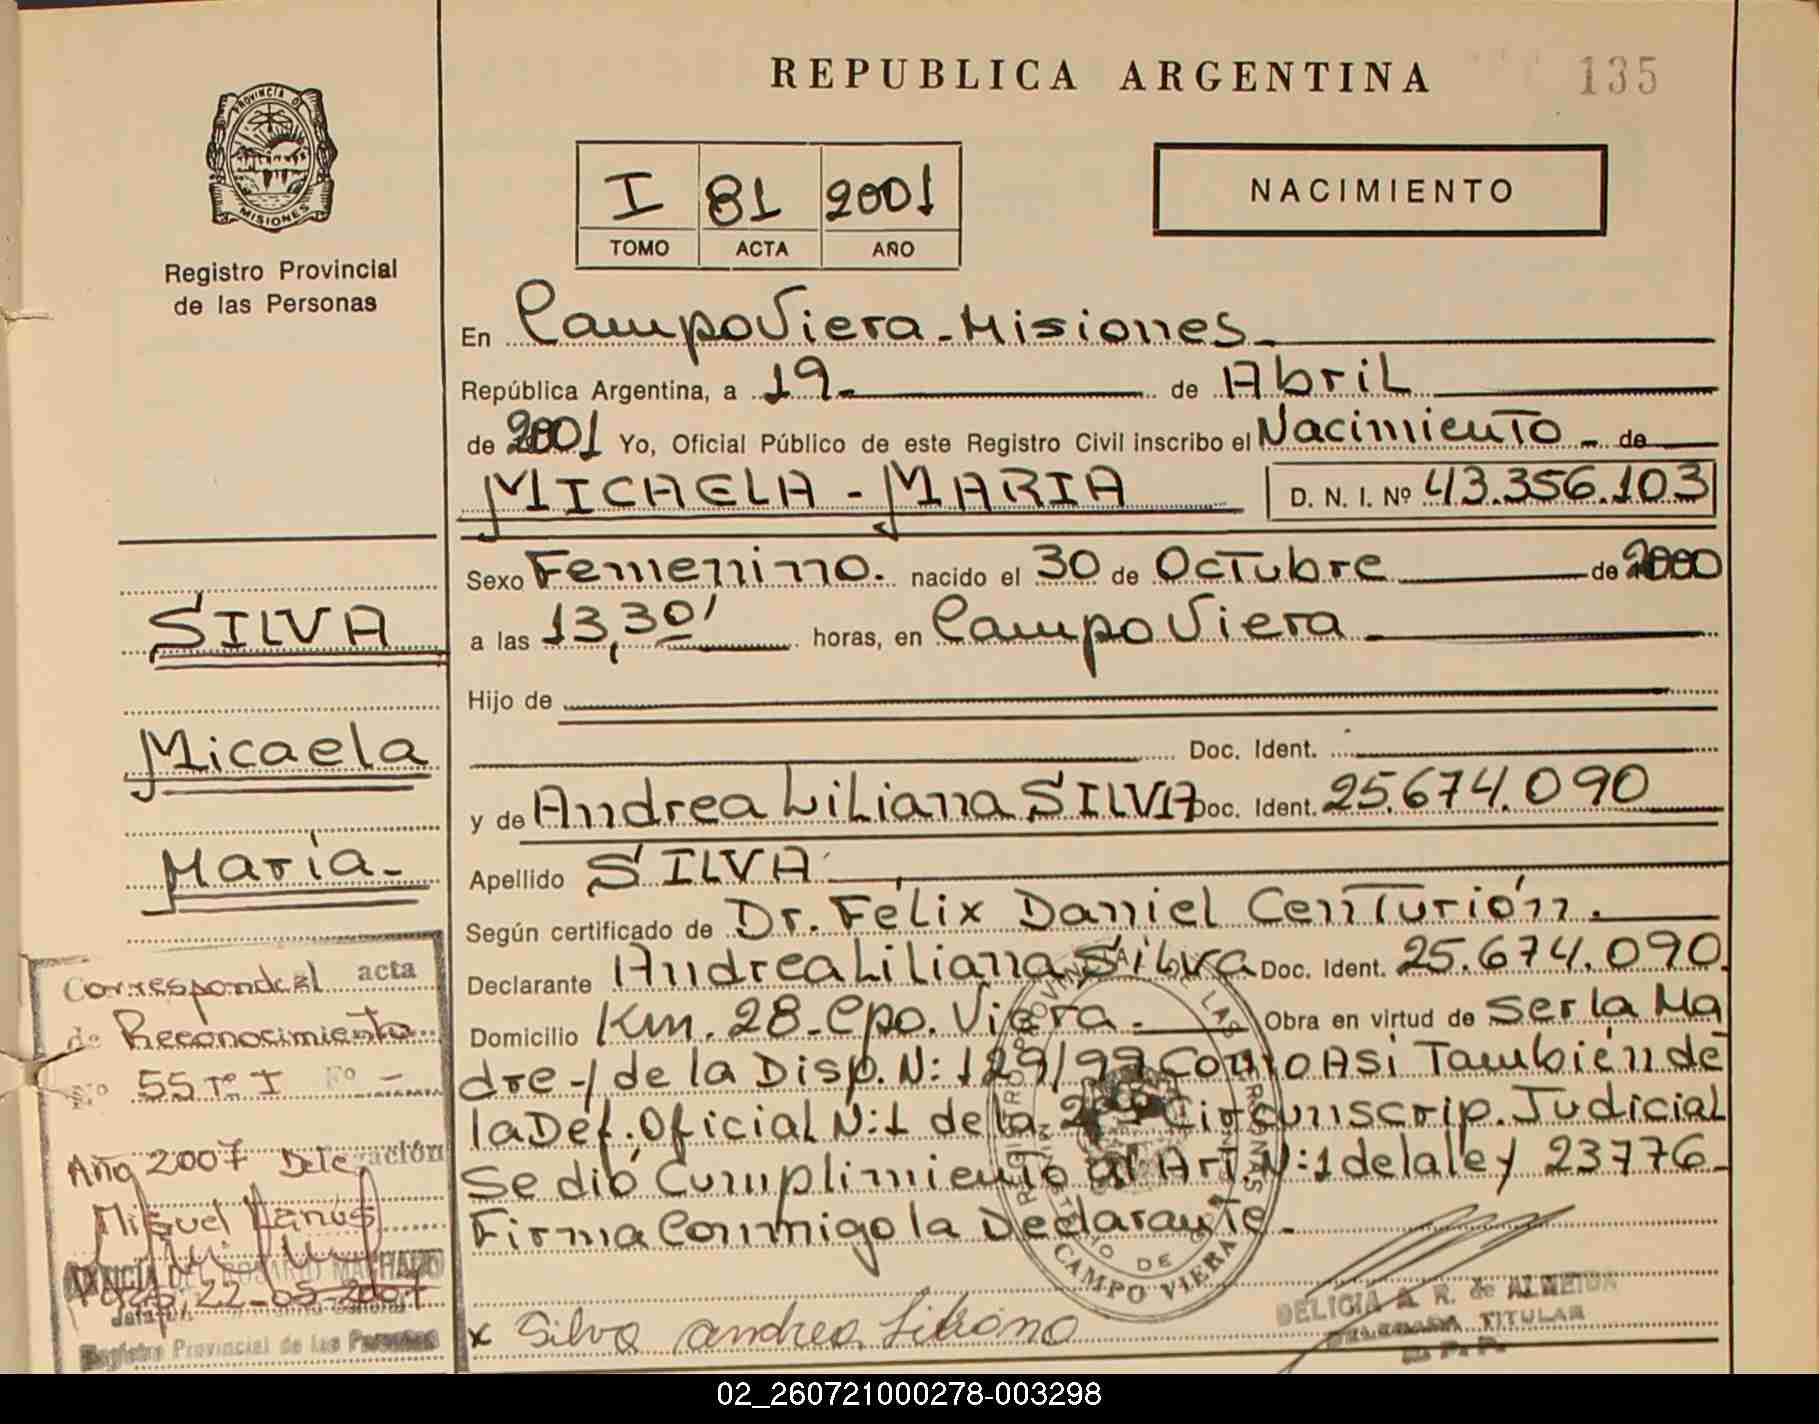 REPUBLICA ARGENTINA
135
PROVINCIA DE
MISIONES
Registro Provincial
de las Personas
I 81 2001
TOMO ACTA AÑO
NACIMIENTO
En Campo Viera - Misiones
República Argentina, a 19.- de Abril
de 2001 Yo, Oficial Público de este Registro Civil inscribo el Nacimiento - de
MICAELA - MARIA D. N. I. Nº 43.356.103
Sexo Femenino. nacido el 30 de Octubre de 2000
a las 13,30' horas, en Campo Viera
Hijo de
Doc. Ident.
y de Andrea Liliana SILVA Doc. Ident. 25.674.090
Apellido SILVA
Según certificado de Dr. Félix Daniel Centurión.
Declarante Andrea Liliana Silva Doc. Ident. 25.674.090.
Domicilio Km. 28 - Cpo. Viera - Obra en virtud de Ser la Ma
dre -/ de la Disp. N: 129/99 Como Asi También de
la Def. Oficial N: 1 de la 2da Circunscrip. Judicial
Se dió Cumplimiento al Art. N: 1 de la ley 23776 -
Firma Conmigo la Declarante -
CAMPO VIERA
x Silva Andrea Liliana
DELICIA A. R. de ALMEIDA
DELEGADA TITULAR
R. P. P.
SILVA
Micaela
María -
Corresponde al acta
de Reconocimiento
Nº 55 Tº I Fº -
Año 2007 Delegación
Miguel Lanus
22-05-2007
Registro Provincial de las Personas
02_260721000278-003298